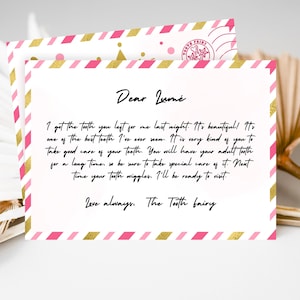 Dear Lumé
I got the tooth you left for me last night. It's beautiful! It's
one of the best teeth I've ever seen. It is very kind of you to
take good care of your teeth. You will have your adult teeth
for a long time, so be sure to take special care of it. Next
time your tooth wiggles, I'll be ready to visit.
Love always, The Tooth fairy